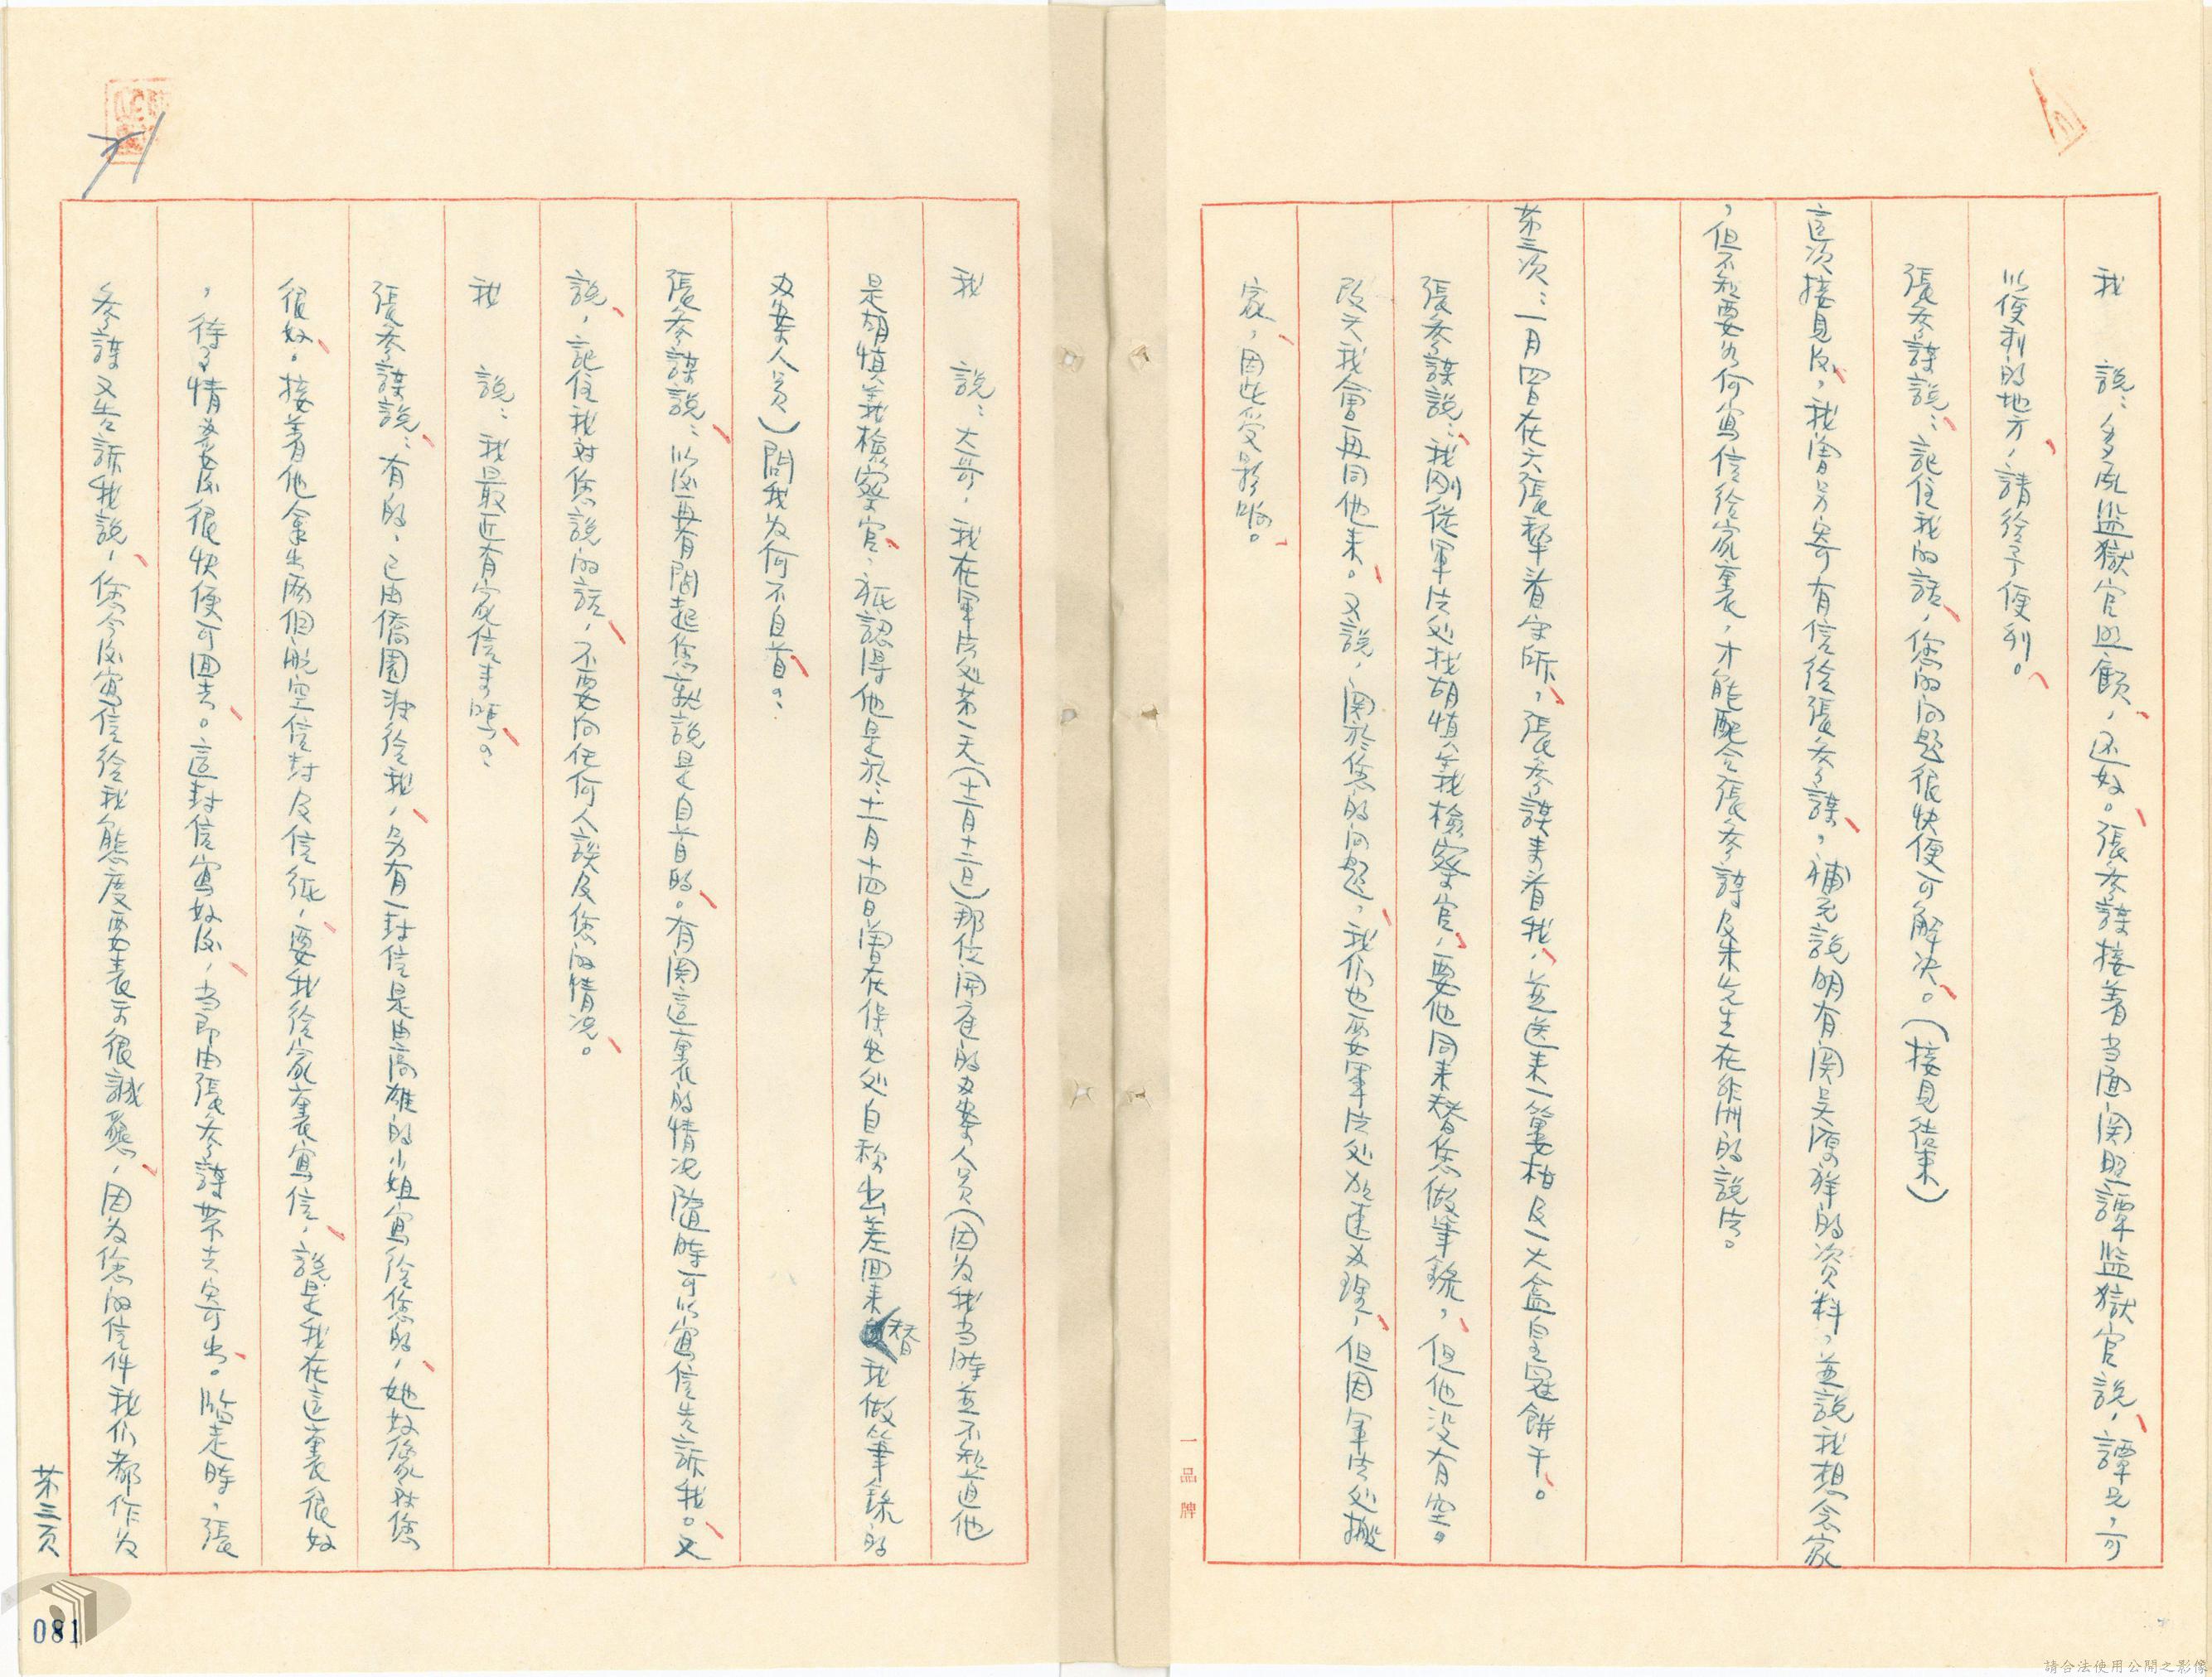 我　說：多虧監獄官照顧，还好。張參謀接着当面関照譚監獄官說，譚兄，可
以便利的地方，請給予便利。
張參謀說：記住我的話，您的问題很快便可解决。（接見结束）
這次接見后，我曾另寄有信給張參謀，補充說明有関吴原祥的资料，並説我想念家
，但不知要如何寫信给家裏，才能配合張參謀及朱先生在非洲的說法。
苐三次：一月四日在六張犂看守所，張參謀来看我，並送来一簍柑及一大盒皇冠餅干。
張參謀說：我刚從軍法处找胡慎義檢察官，要他同来替您做筆錄，但他没有空。
改天我會再同他来。又說，関於您的问題，我们也要軍法处加速办理，但因軍法处搬
家，因此受影响。
一品牌
我　說：大哥，我在軍法处苐一天（十二月十二日）那位開庭的办案人員（因为我当時並不知道他
是胡慎義檢察官，祗認得他是於十一月十四日曾在保安处自称出差回来替我做筆錄的
办案人員）問我为何不自首？
張參謀說：以後再有問起您就說是自首的。有関這裏的情况随時可以寫信告訴我。又
說，記住我対您說的話，不要向任何人談及您的情况。
我　說：我最近有家信来嗎？
張參謀說：有的，已由僑園转给我，另有一封信是由高雄的小姐寫给您的，她好像対您
很好。接着他拿出两個航空信封及信紙，要我给家裏寫信，說是我在這裏很好
，待事情辦妥後很快便可回去。這封信寫好後，当即由張參謀带去寄出。臨走時，張
參謀又告訴我說，您今後寫信给我態度要表示很誠懇，因为您的信件我们都作为
苐三页
081
請合法使用公開之影像